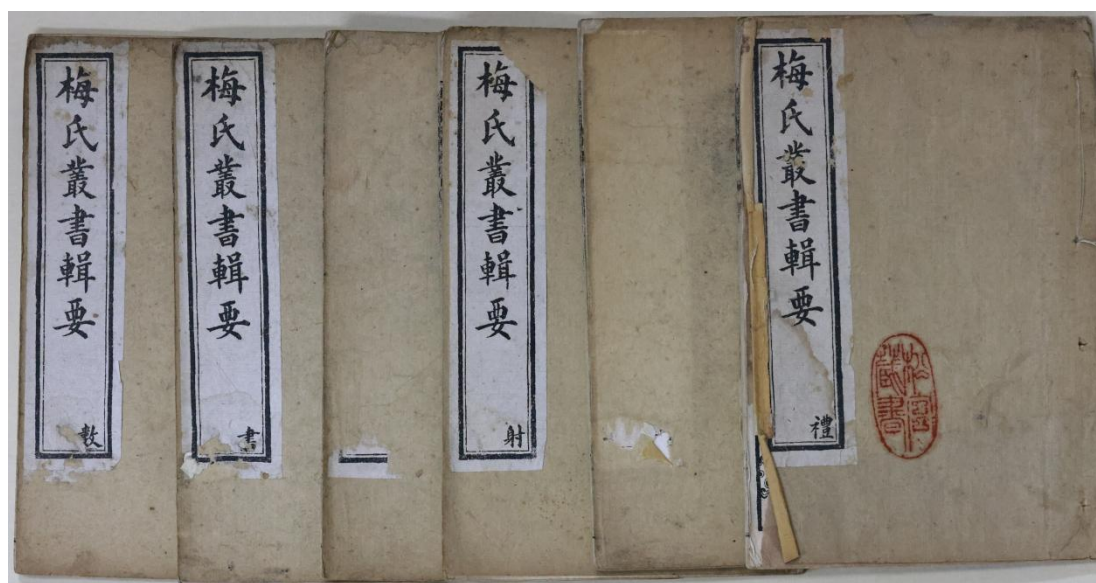 梅氏叢書輯要
禮
藏書
梅氏叢書輯要
射
梅氏叢書輯要
書
梅氏叢書輯要
數